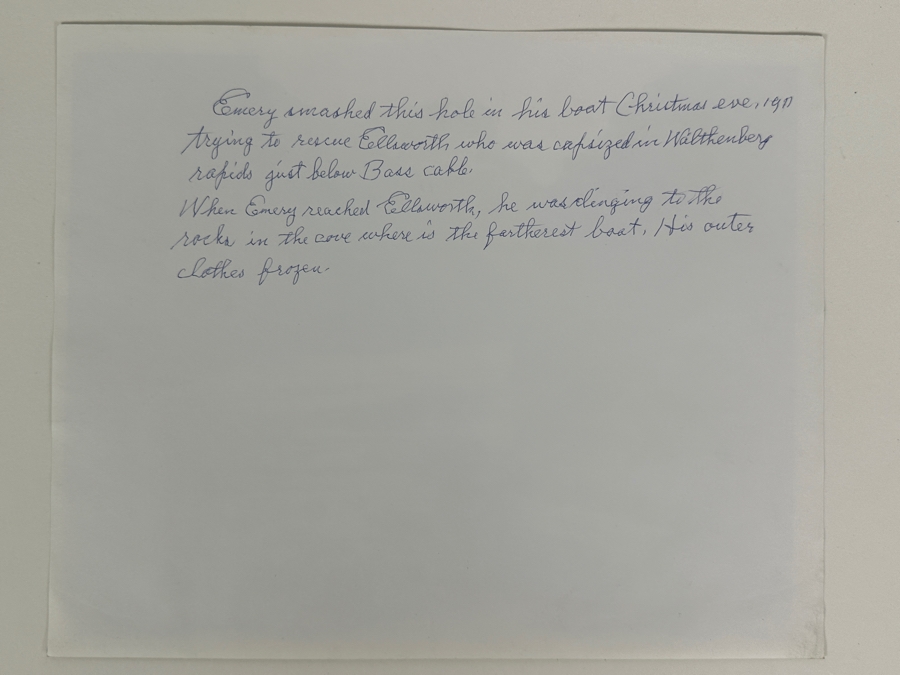 Emery smashed this hole in his boat Christmas eve, 1911
trying to rescue Ellsworth who was capsized in Walthenberg
rapids just below Bass cable.
When Emery reached Ellsworth, he was clinging to the
rocks in the cove where is the fartherest boat. His outer
clothes frozen.